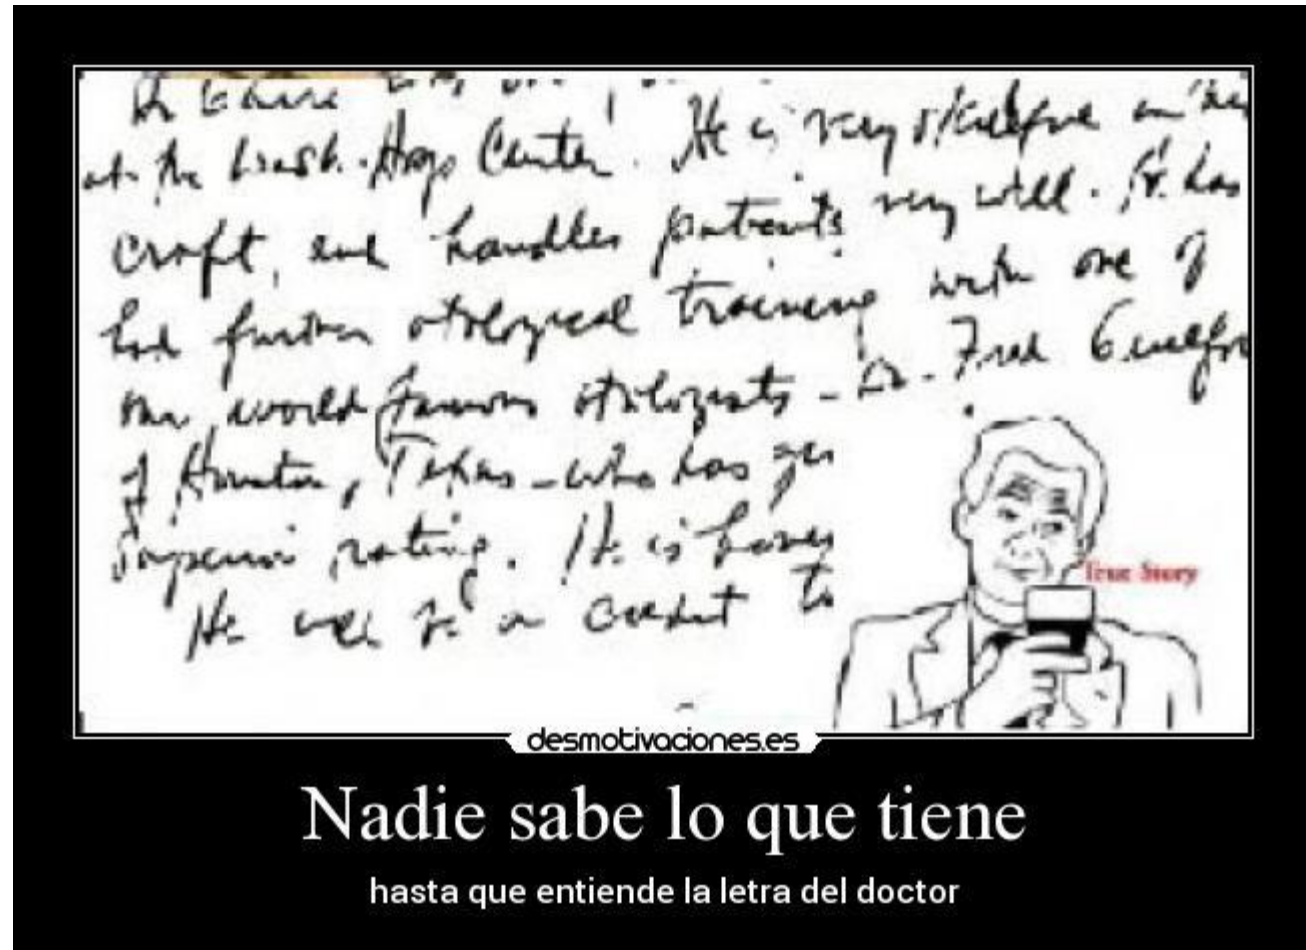 at the Wash. Hosp Center. He is very skillful in
craft, and handles patients very well. He has
had further otological training with one of
our world famous otologists - Dr. Fred Guilfor
of Houston, Texas - who has
Superior rating. He is
He will be a credit to
True Story
desmotivaciones.es
Nadie sabe lo que tiene
hasta que entiende la letra del doctor